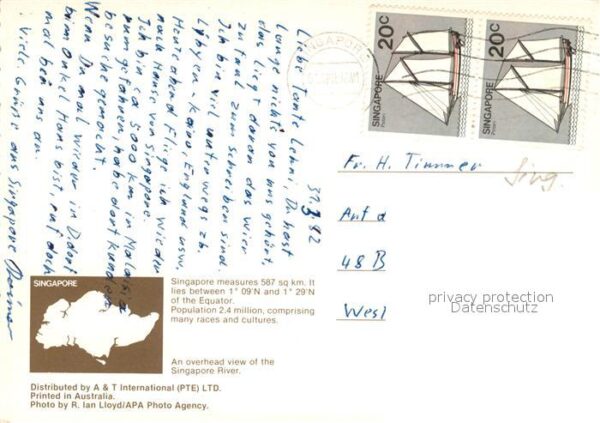 31.3.82
Liebe Tante Lehni, Du hast
lange nichts von uns gehört,
das liegt daran das wir
zu faul zum schreiben sind.
Ich bin viel unterwegs zb.
Libyen, Kairo, England usw.
Heute abend fliege ich wieder
nach Hause von Singapore.
Ich bin ca 3000 km in Malaisia
rum gefahren, habe dort Kunden
besuche gemacht.
Wenn Du mal wieder in Ddorf
beim Onkel Hans bist, ruf doch
mal bei uns an.
Viele Grüsse aus Singapore
SINGAPORE
20c
SINGAPORE
20c
SINGAPORE
Fr. H. Timmer
Sing.
48 B
West
privacy protection
Datenschutz
SINGAPORE
Singapore measures 587 sq km. It
lies between 1° 09'N and 1° 29'N
of the Equator.
Population 2.4 million, comprising
many races and cultures.
An overhead view of the
Singapore River.
Distributed by A & T International (PTE) LTD.
Printed in Australia.
Photo by R. Ian Lloyd/APA Photo Agency.